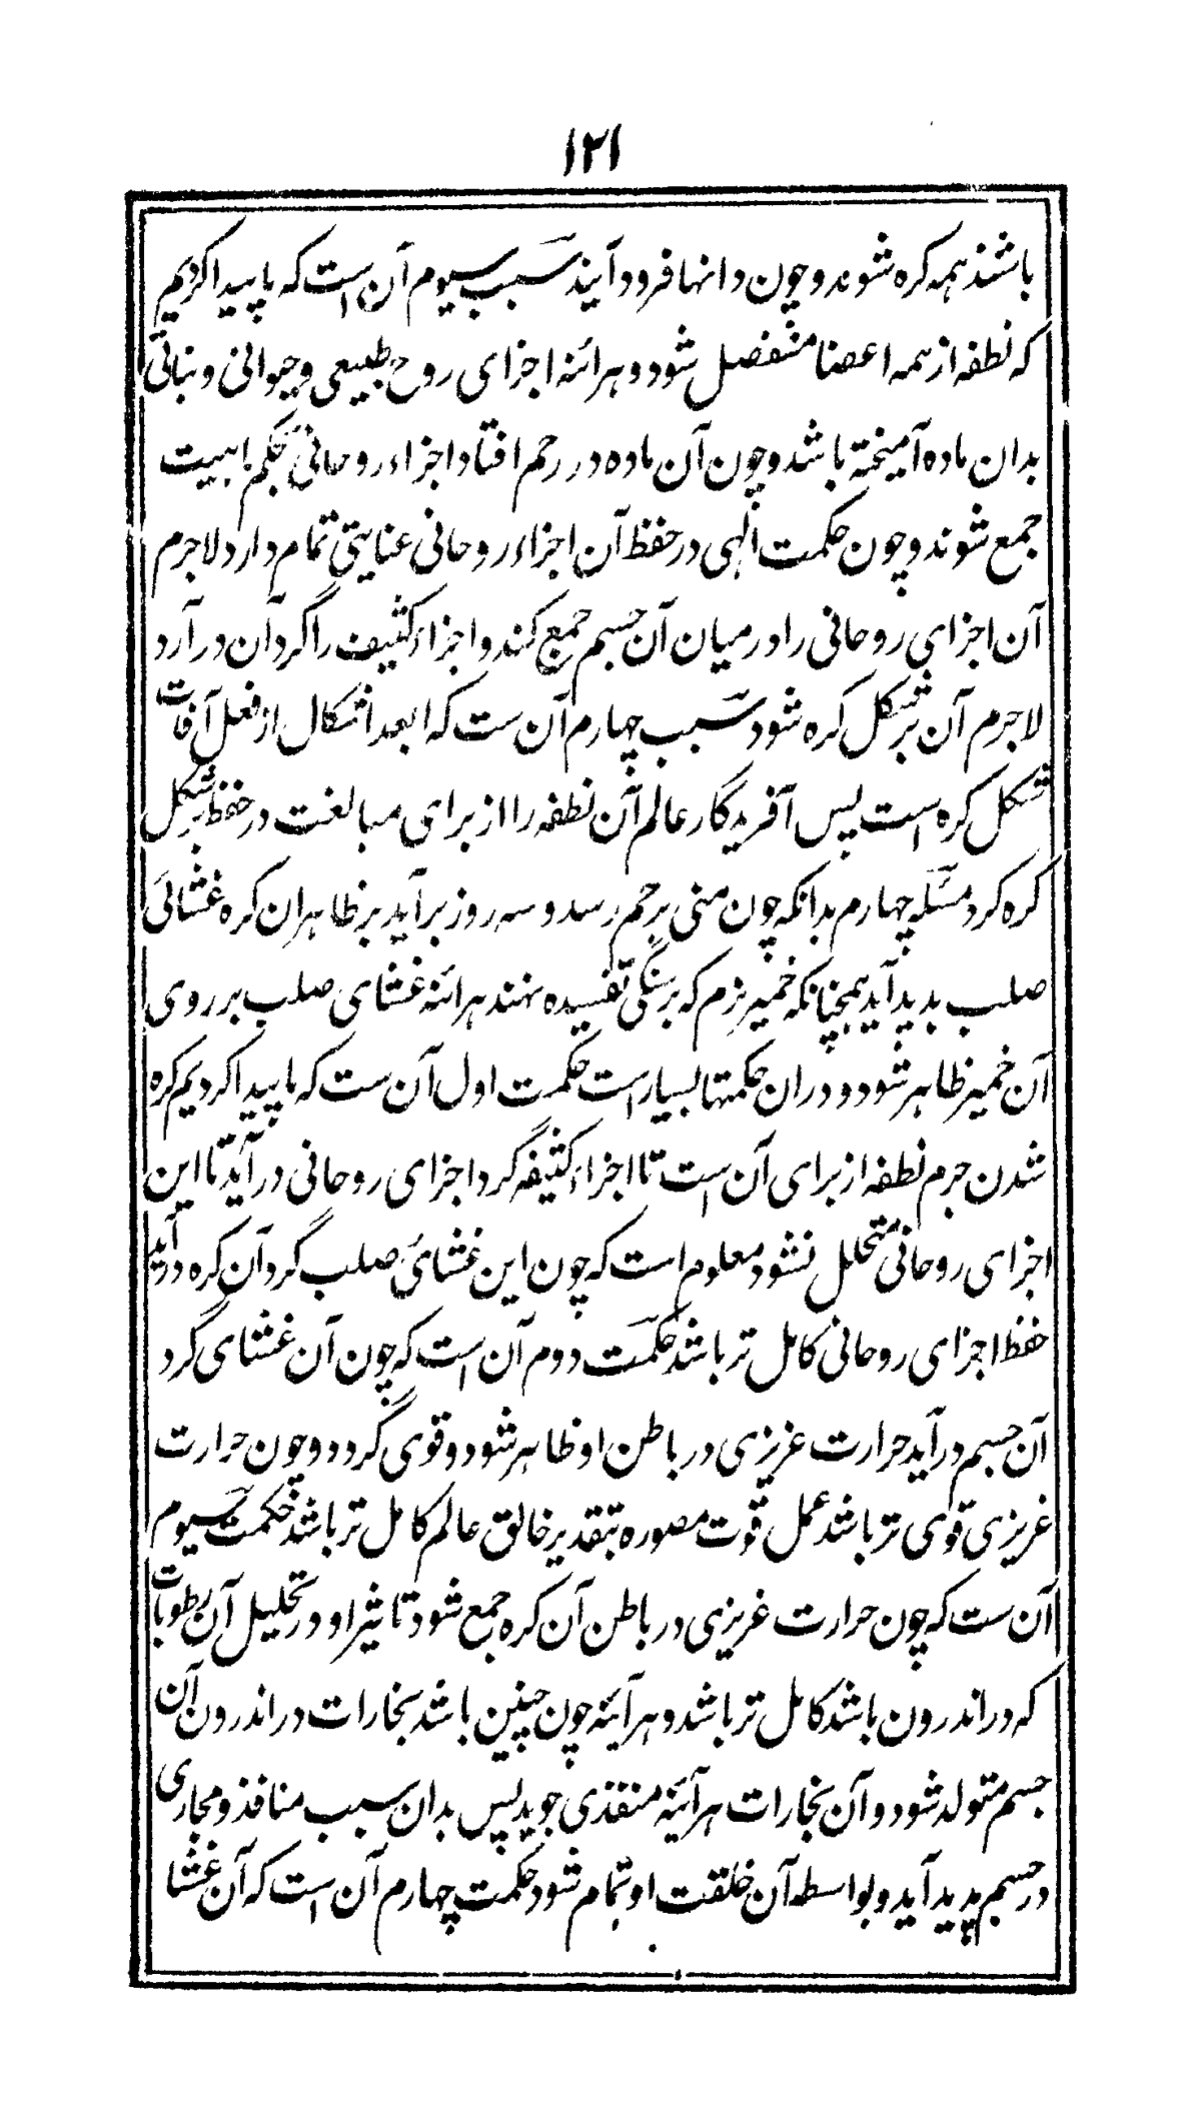 ۱۲۱
باشند همه کره شوند و چون دانها فرود آیند سبب سیوم آن است که پاپیدا کردیم
که نطفه از همه اعضا منفصل شود و هرائنه اجزای روح طبیعی و حیوانی و نباتی
بدان ماده آمیخته باشد و چون آن ماده در رحم افتاد اجزاء روحانی بحکم
جمع شوند و چون حکمت الهی در حفظ آن اجزاء روحانی عنایتی تمام دارد لاجرم
آن اجزای روحانی را در میان آن جسم جمع کند و اجزاء کثیف را گرد آن در آرد
لاجرم آن بر شکل کره شود سبب چهارم آن ست که ابعد اشکال از فعل آفات
شکل کره است پس آفریدگار عالم آن نطفه را از برای مبالغت در حفظ بر شکل
کره کرد مسئله چهارم بدانکه چون منی برحم رسد و سه روز برآید بر ظاهر ان کره غشائی
صلب بدید آید همچنانکه خمیر نرم که بر سنگی تفسیده نهند هرائنه غشای صلب بر روی
آن خمیر ظاهر شود و دران حکمتها بسیار است حکمت اول آن ست که ما پیدا کردیم کره
شدن جرم نطفه از برای آن است تا اجزاء کثیفه گرد اجزای روحانی در آید تا این
اجزای روحانی متحلل نشود معلوم است که چون این غشائ صلب گرد آن کره در آید
حفظ اجزای روحانی کامل تر باشد حکمت دوم آن است که چون آن غشای گرد
آن جسم در آید حرارت غریزی در باطن او ظاهر شود و قوی گردد و چون حرارت
غریزی قوی تر باشد عمل قوت مصوره بتقدیر خالق عالم کامل تر باشد حکمت سیوم
آن ست که چون حرارت غریزی در باطن آن کره جمع شود تاثیر او در تحلیل آن رطوبات
که در اندرون باشد کامل تر باشد و هر آئنه چون چنین باشد بخارات در اندرون آن
جسم متولد شود و آن بخارات هر آئنه منفذی جوید پس بدان سبب منافذ و مجاری
در جسم پدید آید و بواسطه آن خلقت او تمام شود حکمت چهارم آن است که آن غشا